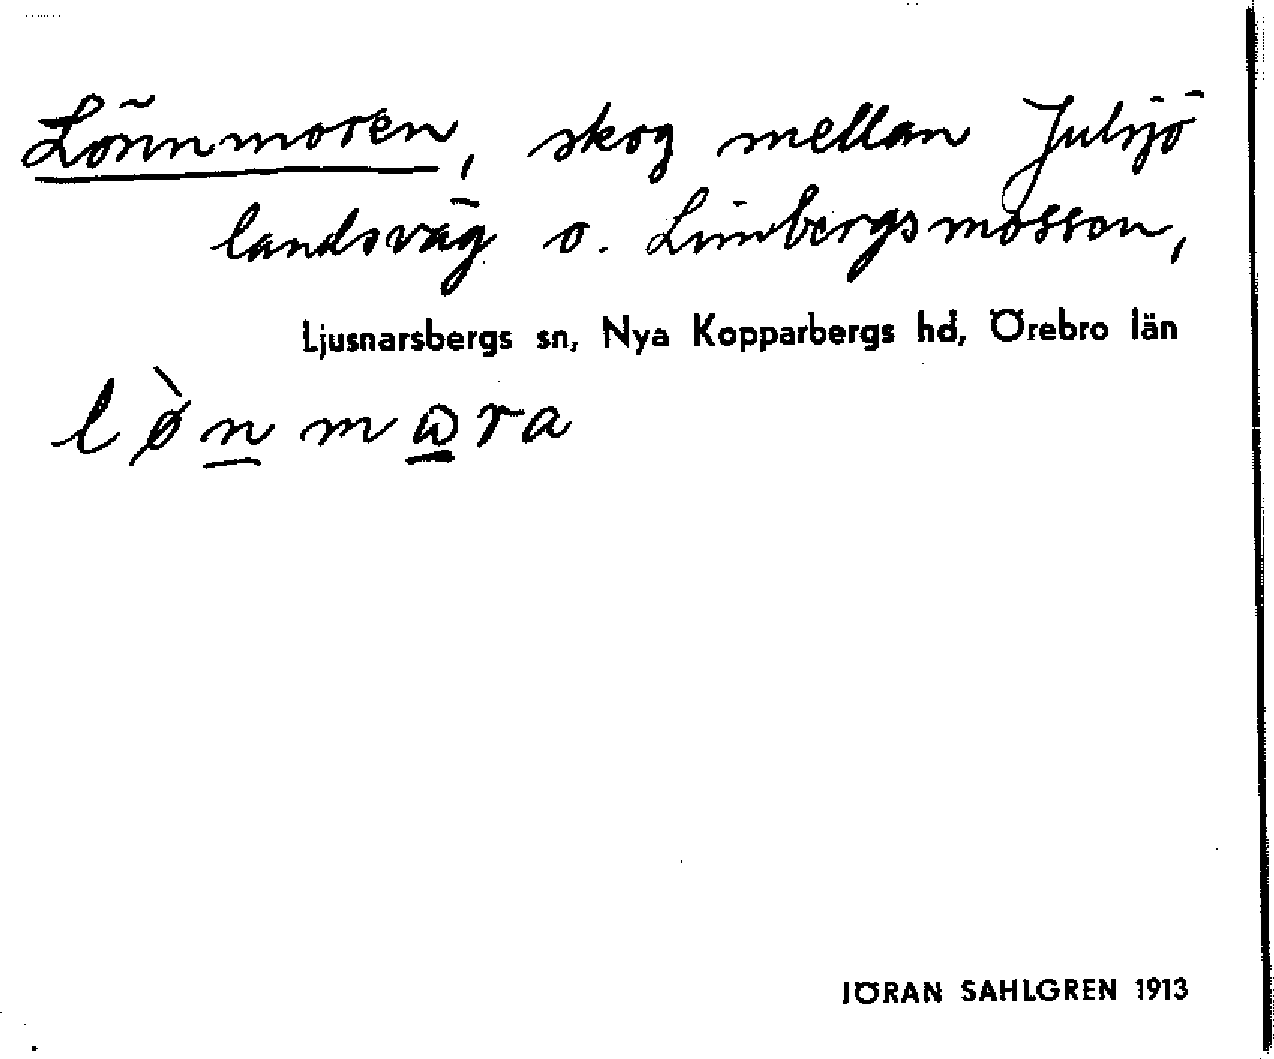 Lönnmoren, skog mellan Julsjö
landsväg o. Limbergsmossen,
Ljusnarsbergs sn, Nya Kopparbergs hd, Örebro län
lø̀n̲mω̲ra
JÖRAN SAHLGREN 1913